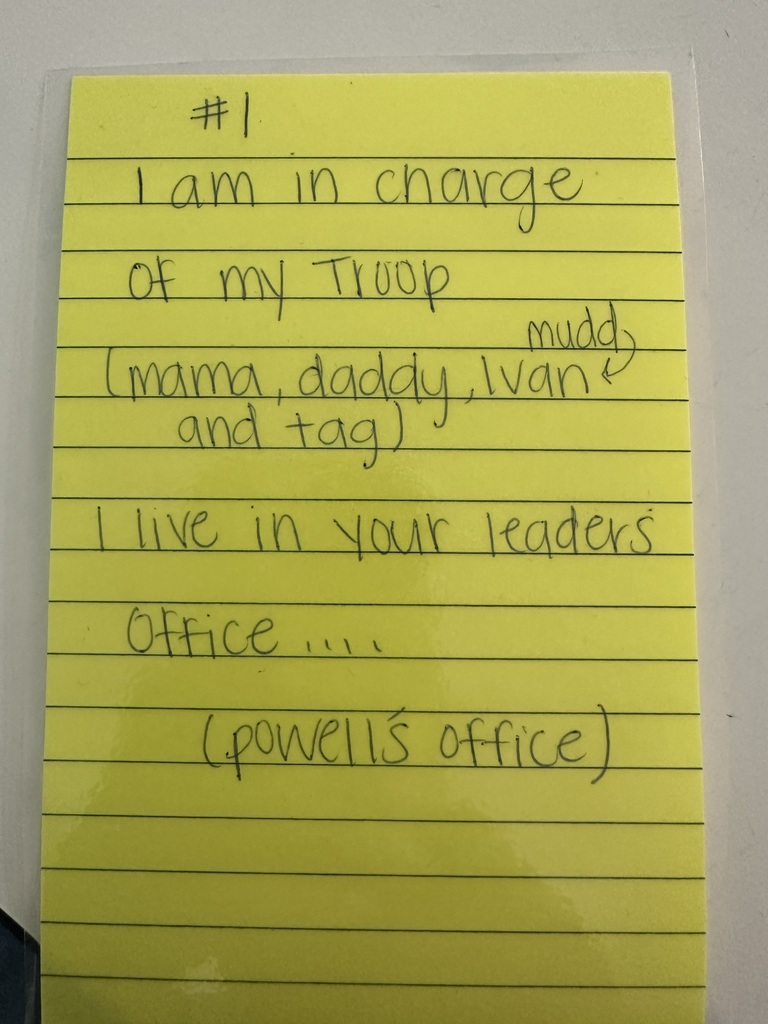 #1
I am in charge
of my Troop
mudd
(mama, daddy, Ivan
and tag)
I live in your leaders
Office ....
(powell's office)